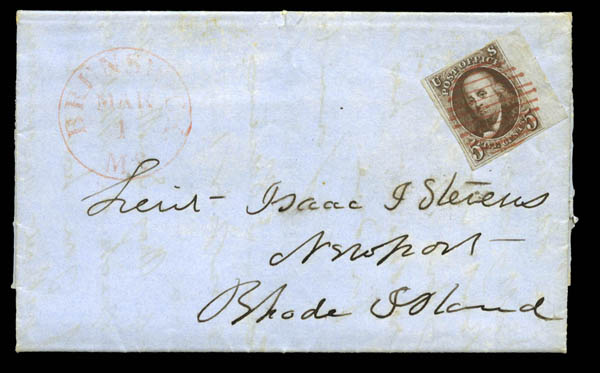 MAR
1
U S
POST OFFICE
5 FIVE CENTS 5
Lieut- Isaac I Stevens
Newport-
Rhode Island